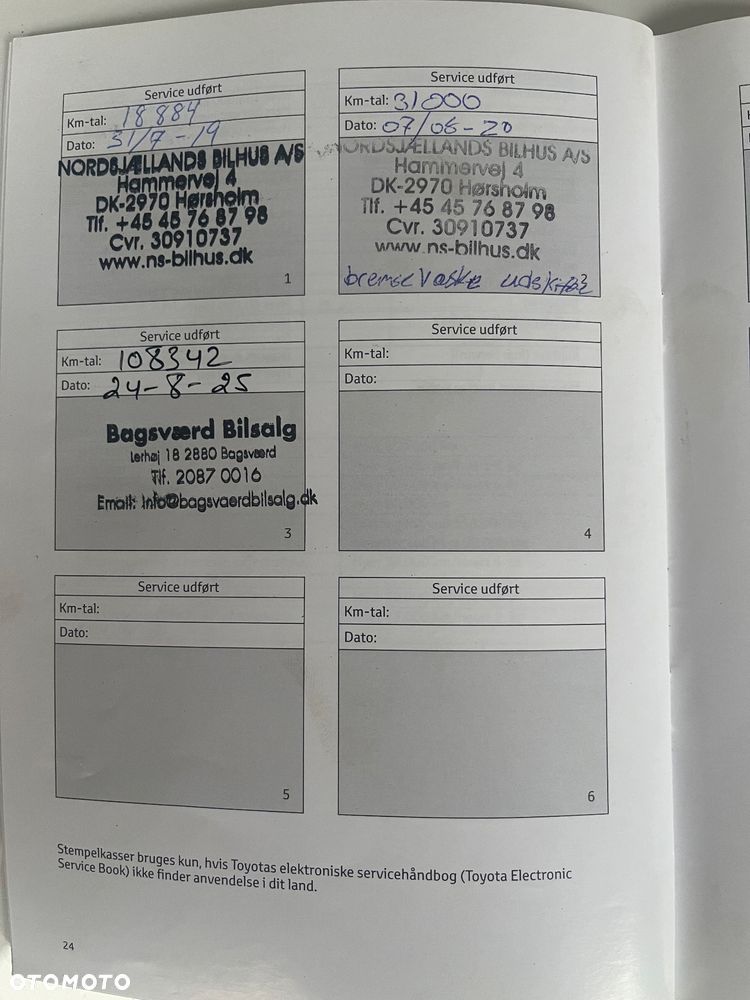 Service udført
Km-tal: 18884
Dato: 31/7-19
NORDSJÆLLANDS BILHUS A/S
Hammervej 4
DK-2970 Hørsholm
Tlf. +45 45 76 87 98
Cvr. 30910737
www.ns-bilhus.dk
1
Service udført
Km-tal: 31000
Dato: 07/06-20
NORDSJÆLLANDS BILHUS A/S
Hammervej 4
DK-2970 Hørsholm
Tlf. +45 45 76 87 98
Cvr. 30910737
www.ns-bilhus.dk
bremse væske
2
Service udført
Km-tal: 108342
Dato: 24-8-25
Bagsværd Bilsalg
Lerhøj 18 2880 Bagsværd
Tlf. 2087 0016
Email: Info@bagsvaerdbilsalg.dk
3
Service udført
Km-tal:
Dato:
4
Service udført
Km-tal:
Dato:
5
Service udført
Km-tal:
Dato:
6
Stempelkasser bruges kun, hvis Toyotas elektroniske servicehåndbog (Toyota Electronic
Service Book) ikke finder anvendelse i dit land.
24
OTOMOTO